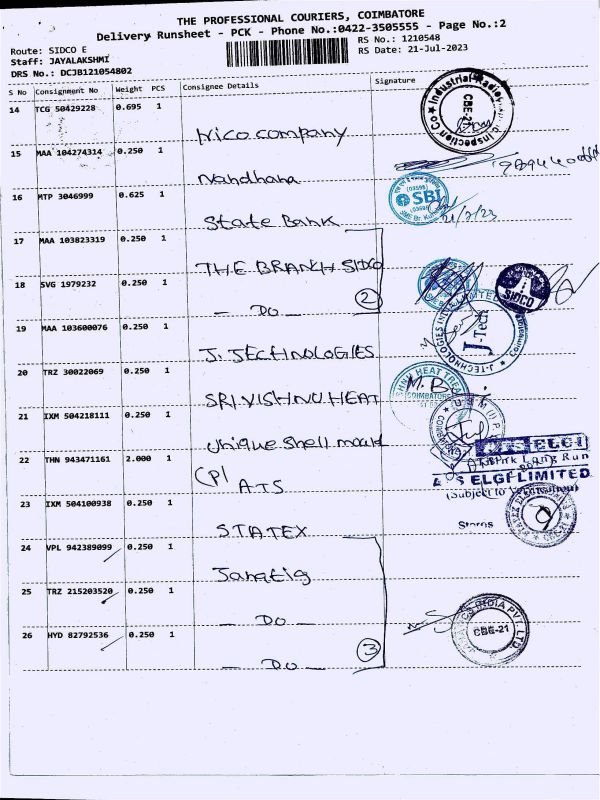 THE PROFESSIONAL COURIERS, COIMBATORE
Delivery Runsheet - PCK - Phone No.:0422-3505555 - Page No.:2
Route: SIDCO E
RS No.: 1210548
Staff: JAYALAKSHMI
RS Date: 21-Jul-2023
DRS No.: DCJB121054802
S No Consignment No Weight PCS Consignee Details Signature
14 TCG 50429228 0.695 1
Irico company
Industrial Radio
Inspection Co
CBE-21
15 MAA 104274314 0.250 1
Nandhana
16 MTP 3046999 0.625 1
State Bank
SBI
21/7/23
17 MAA 103823319 0.250 1
THE BRANCH SIDCO
18 SVG 1979232 0.250 1
— DO — 2
SIDCO
19 MAA 103600076 0.250 1
J. TECHNOLOGIES
J-Tech
J-TECHNOLOGIES
20 TRZ 30022069 0.250 1
SRI VISHNU HEAT
HNU HEAT TREA
COIMBATORE
M. B
21 IXM 504218111 0.250 1
unique shell mould
22 THN 943471161 2.000 1
(P) ATS
ATS ELGI
ATS ELGI LIMITED
(Subject to
Stores
23 IXM 504100938 0.250 1
STATEX
24 VPL 942389099 0.250 1
Janatig
25 TRZ 215203520 0.250 1
— DO —
26 HYD 82792536 0.250 1
— DO — 3
INDIA PVT. LTD
CBE-21